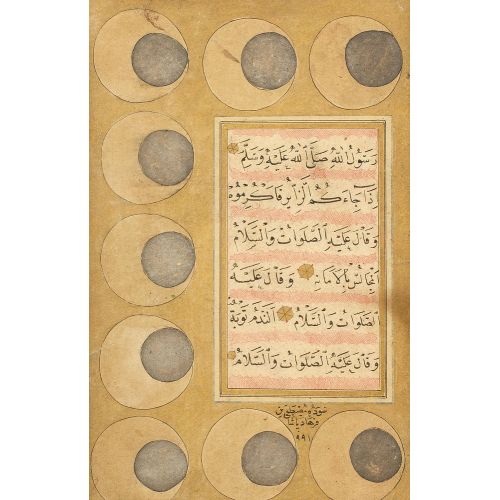 رَسُولُ اللهِ صَلَّى اللهُ عَلَيْهِ وَسَلَّمَ
إِذَا جَاءَكُمُ الزَّايِرُ فَاكْرِمُوهُ
وَقَالَ عَلَيْهِ الصَّلَوَاتُ وَالسَّلَامُ
اَلْمَجَالِسُ بِالْاَمَانَةِ وَقَالَ عَلَيْهِ
الصَّلَوَاتُ وَالسَّلَامُ اَلنَّدَمُ تَوْبَةٌ
وَقَالَ عَلَيْهِ الصَّلَوَاتُ وَالسَّلَامُ
سوده مصطفى بن
فرهاد پاشا
٩٩١